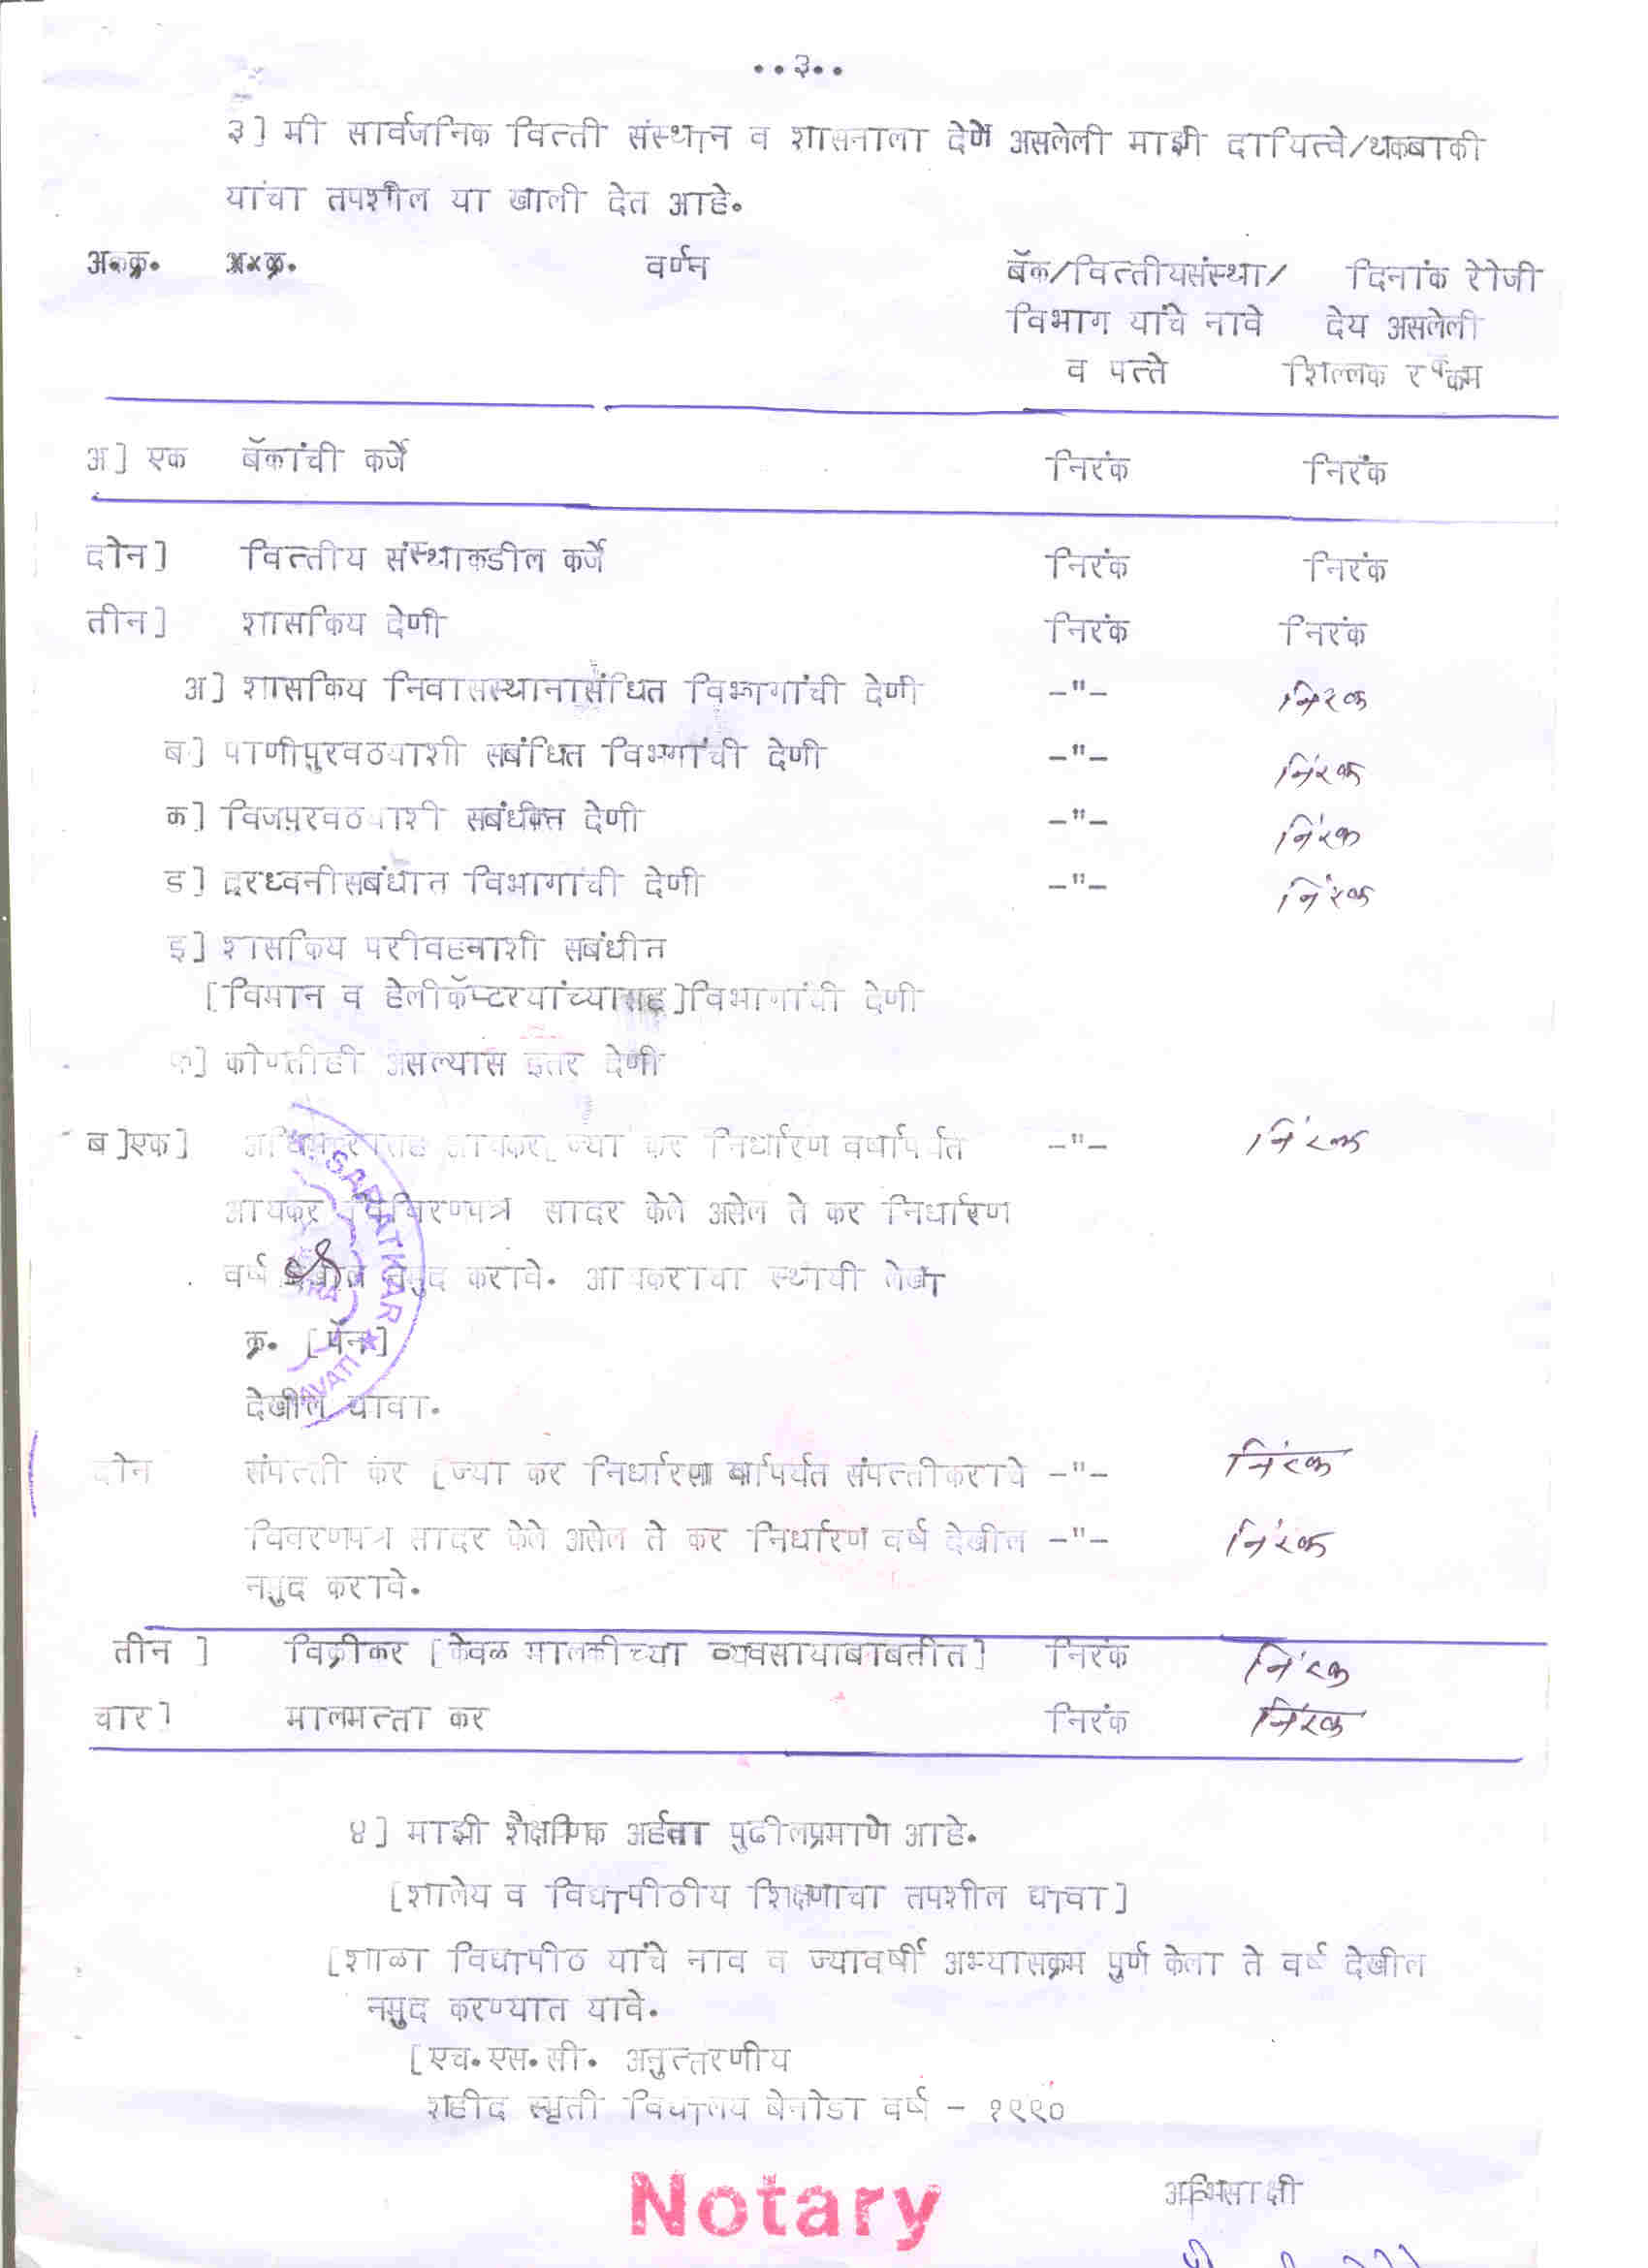 ..३..
३] मी सार्वजनिक वित्ती संस्थान व शासनाला देणे असलेली माझी दायित्वे/थकबाकी
यांचा तपशील या खाली देत आहे.
अ.क्र. अ.क्र. वर्णन बॅंक/वित्तीयसंस्था/ दिनांक रोजी
विभाग यांचे नावे देय असलेली
व पत्ते शिल्लक रक्कम
अ] एक बॅंकांची कर्जे निरंक निरंक
दोन] वित्तीय संस्थाकडील कर्जे निरंक निरंक
तीन] शासकिय देणी निरंक निरंक
अ] शासकिय निवासस्थानासंधित विभागांची देणी -"- निरंक
ब] पाणीपुरवठयाशी सबंधित विभगांची देणी -"- निरंक
क] विजपुरवठयाशी सबंधीत देणी -"- निरंक
ड] दूरध्वनीसबंधात विभागांची देणी -"- निरंक
इ] शासकिय परीवहनाशी सबंधीत
[विमान व हेलीकॅप्टरयांच्यासह]विभागांची देणी
फ] कोणतीही असल्यास इतर देणी
ब]एक] आयकर[ ज्या कर निर्धारण वर्षापर्यंत -"- निरंक
आयकर विविरणपत्र सादर केले असेल ते कर निर्धारण
वर्ष देखील नमुद करावे. आयकराचा स्थायी लेखा
क्र. [पॅन]
देखील यावा.
दोन संपत्ती कर [ज्या कर निर्धारण वर्षापर्यंत संपत्तीकराचे -"- निरंक
विवरणपत्र सादर केले असेल ते कर निर्धारण वर्ष देखील -"- निरंक
नमुद करावे.
तीन ] विक्रीकर [केवळ मालकीच्या व्यवसायाबाबतीत] निरंक निरंक
चार] मालमत्ता कर निरंक निरंक
४] माझी शैक्षणिक अर्हता पुढीलप्रमाणे आहे.
[शालेय व विद्यापीठीय शिक्षणाचा तपशील द्यावा]
[शाळा विद्यापीठ यांचे नाव व ज्यावर्षी अभ्यासक्रम पुर्ण केला ते वर्ष देखील
नमुद करण्यात यावे.
[एच.एस.सी. अनुत्तरणीय
शहीद स्मृती विद्यालय बेनोडा वर्ष - १९९०
SAPATKAR
AVATI
Notary
अभिसाक्षी